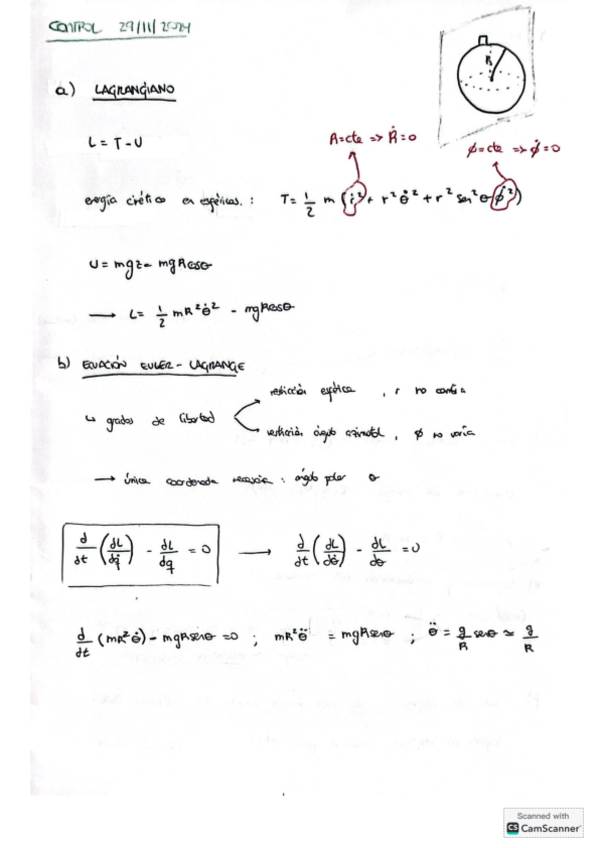 CONTROL 29/11/2024
R
a) LAGRANGIANO
L = T - U
R=cte => Ṙ=0
φ=cte => φ̇=0
energía cinética en esféricas. : T = 1/2 m (ṙ² + r²θ̇² + r² sen²θ φ̇²)
U = mgz = mgRcosθ
→ L = 1/2 mR²θ̇² - mgRcosθ
b) ECUACIÓN EULER-LAGRANGE
↳ grados de libertad
restricción esférica, r no cambia
restricción ángulo azimutal, φ no varía
→ única coordenada necesaria : ángulo polar θ
d/dt (dL/dq̇) - dL/dq = 0 → d/dt (dL/dθ̇) - dL/dθ = 0
d/dt (mR²θ̇) - mgRsenθ = 0 ; mR²θ̈ = mgRsenθ ; θ̈ = g/R senθ ≃ g/R
Scanned with
CS CamScanner